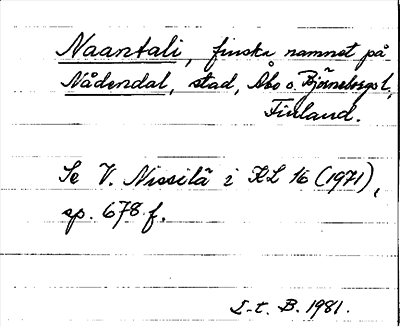 Naantali, finska namnet på
Nådendal, stad, Åbo o. Björneborgs l.,
Finland.
Se V. Nissilä i KL 16 (1971),
sp. 678 f.
L-t. B. 1981.